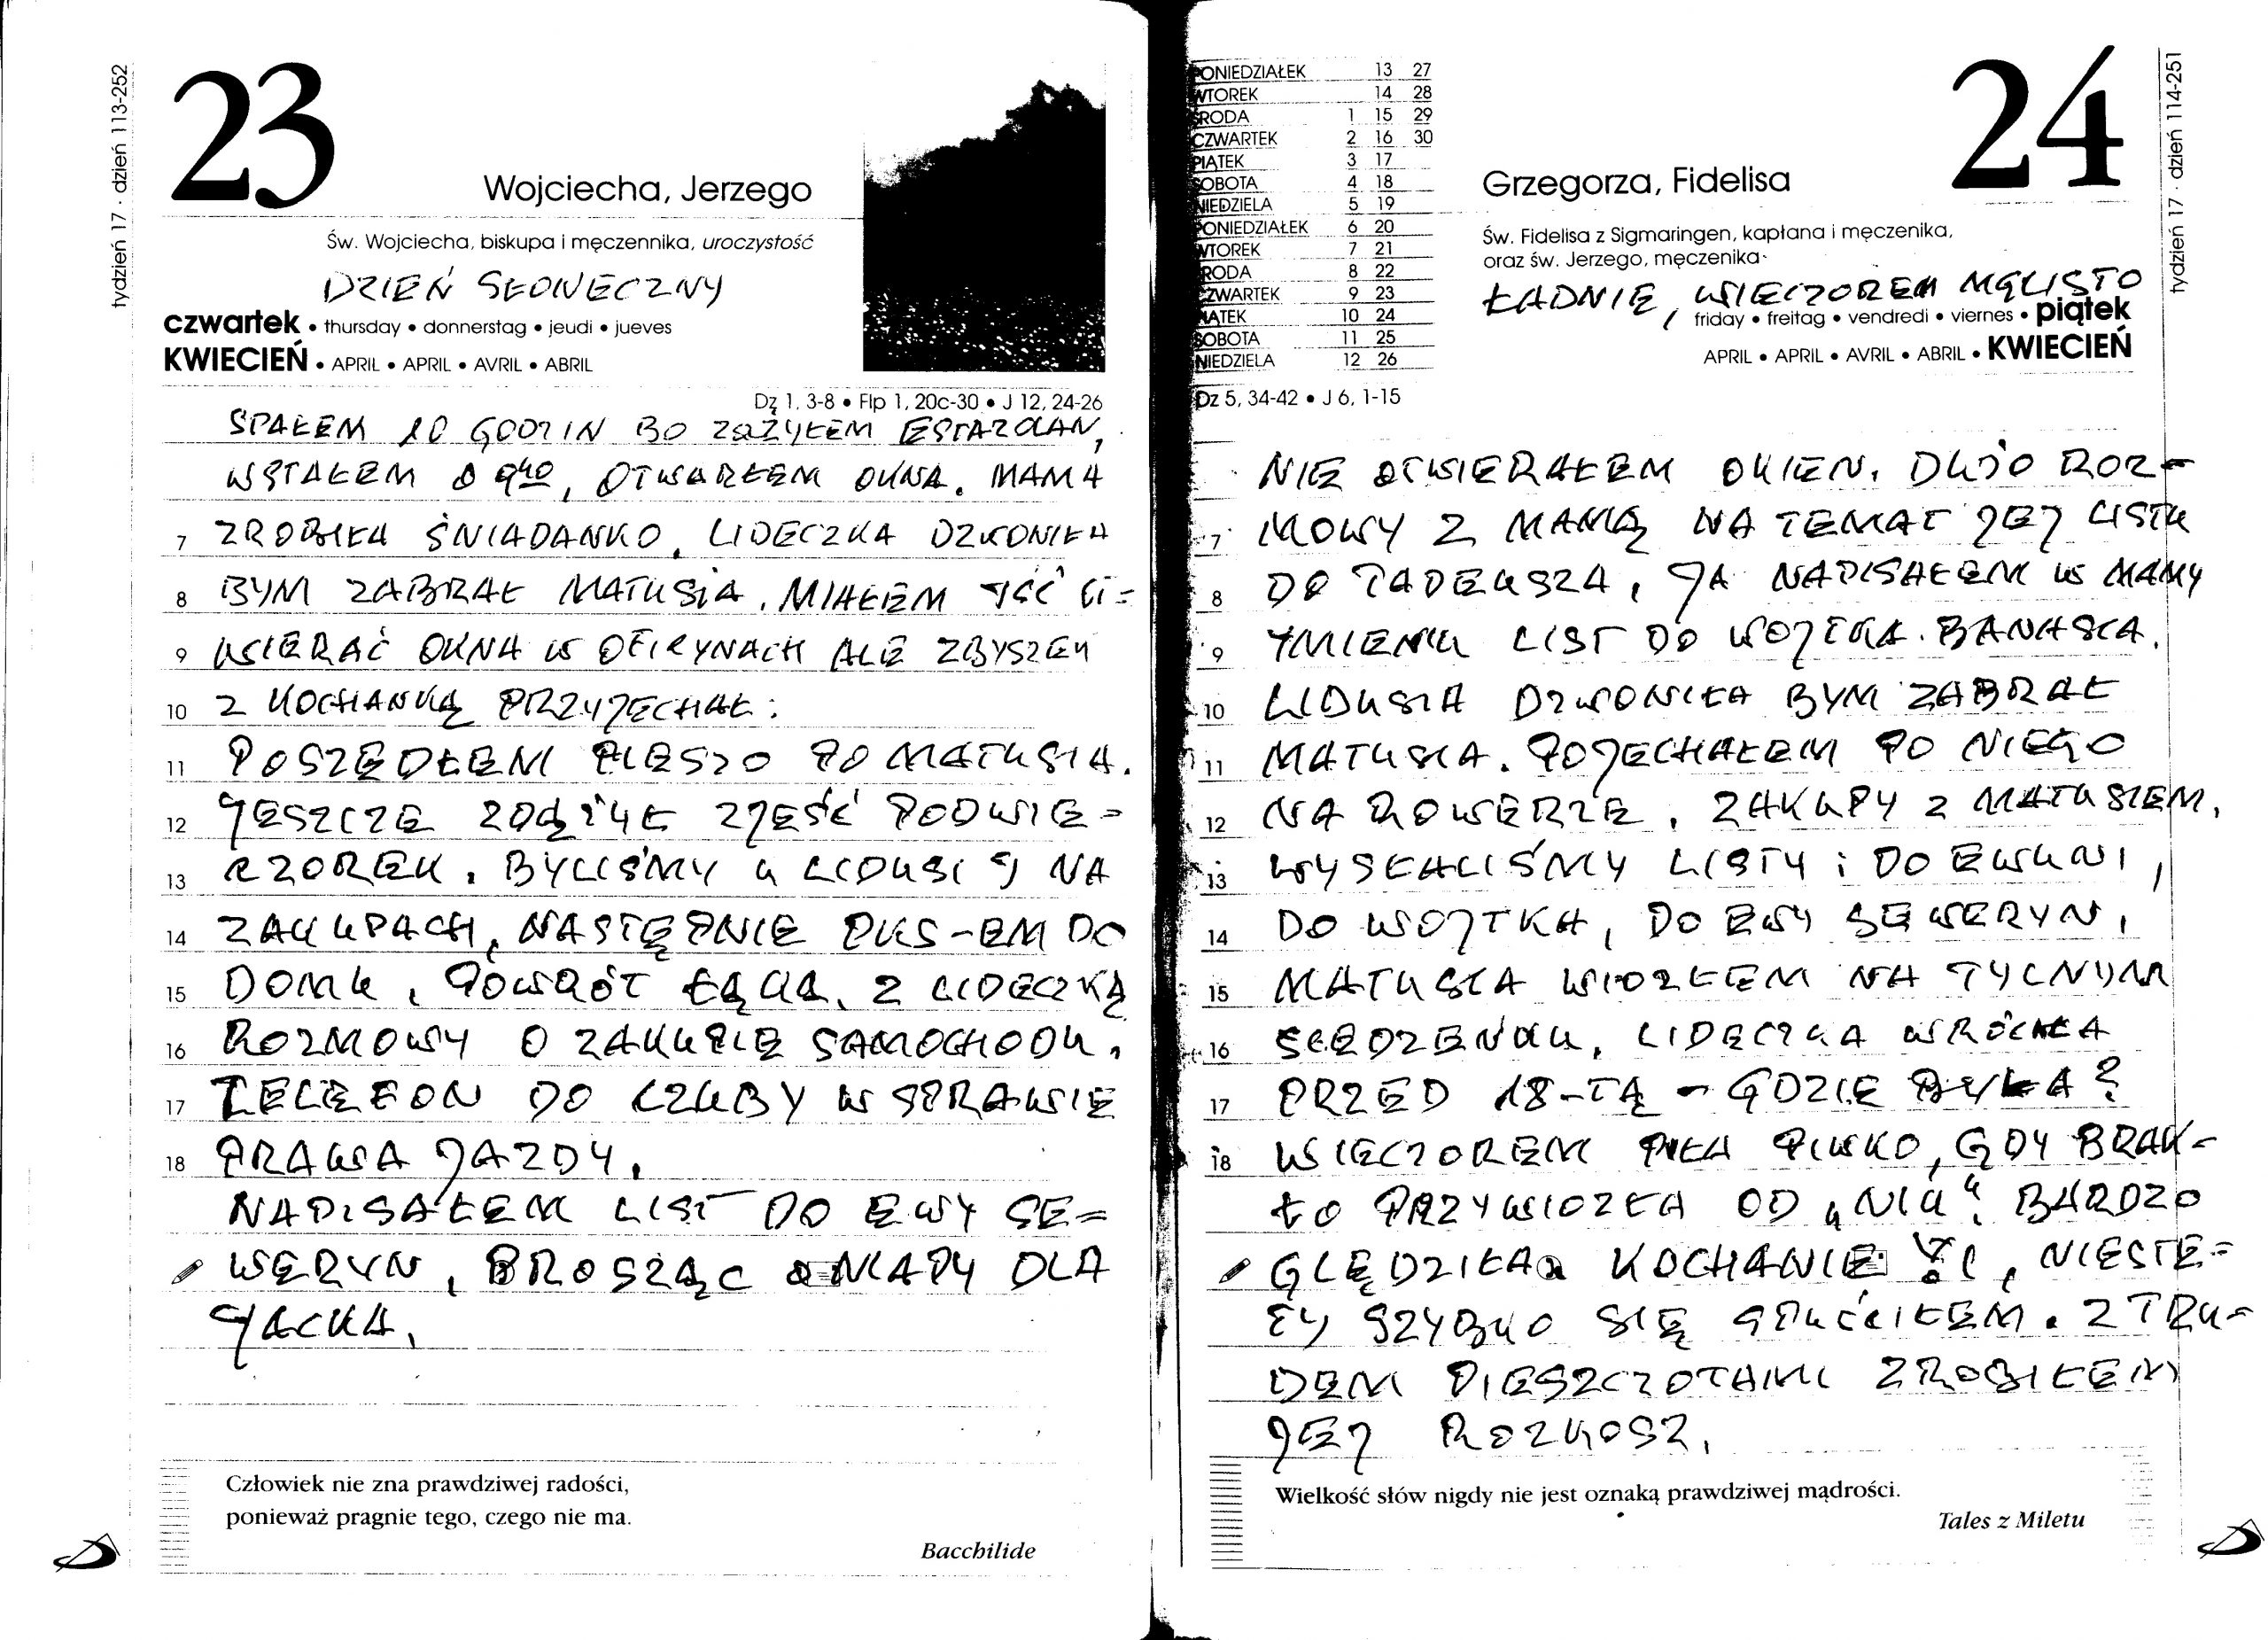 tydzień 17 · dzień 113-252
23
Wojciecha, Jerzego
Św. Wojciecha, biskupa i męczennika, uroczystość
DZIEŃ SŁONECZNY
czwartek • thursday • donnerstag • jeudi • jueves
KWIECIEŃ • APRIL • APRIL • AVRIL • ABRIL
Dz 1, 3-8 • Flp 1, 20c-30 • J 12, 24-26
SPAŁEM 10 GODZIN BO ZAŻYŁEM ESTAZOLAN,
WSTAŁEM O 9 40, OTWARŁEM OKNA. MAMA
7 ZROBIŁA ŚNIADANKO. LIDECZKA DZWONIŁA
8 BYM ZABRAŁ MATUSIA. MIAŁEM IŚĆ
9 WIERAĆ OKNA W OFICYNACH ALE ZBYSZEK
10 Z KOCHANKĄ PRZYJECHAŁ.
11 POSZEDŁEM PIESZO PO MATUSIA.
12 JESZCZE ZDĄŻYŁ ZJEŚĆ PODWIE=
13 CZOREK. BYLIŚMY U LIDUSI I NA
14 ZAKUPACH, NASTĘPNIE PKS-EM DO
15 DOMU, POWRÓT ŁĄKĄ. Z LIDECZKĄ
16 ROZMOWY O ZAKUPIE SAMOCHODU.
17 TELEFON DO CZUBY W SPRAWIE
18 PRAWA JAZDY.
NAPISAŁEM LIST DO EWY SE=
WERYN, PROSZĄC O MAPY DLA
JACKA.
Człowiek nie zna prawdziwej radości,
ponieważ pragnie tego, czego nie ma.
Bacchilide
PONIEDZIAŁEK 13 27
WTOREK 14 28
ŚRODA 1 15 29
CZWARTEK 2 16 30
PIĄTEK 3 17
SOBOTA 4 18
NIEDZIELA 5 19
PONIEDZIAŁEK 6 20
WTOREK 7 21
ŚRODA 8 22
CZWARTEK 9 23
PIĄTEK 10 24
SOBOTA 11 25
NIEDZIELA 12 26
24
tydzień 17 · dzień 114-251
Grzegorza, Fidelisa
Św. Fidelisa z Sigmaringen, kapłana i męczenika,
oraz św. Jerzego, męczenika
ŁADNIE, WIECZOREM MGLISTO
friday • freitag • vendredi • viernes • piątek
APRIL • APRIL • AVRIL • ABRIL • KWIECIEŃ
Dz 5, 34-42 • J 6, 1-15
NIE OTWIERAŁEM OKIEN. DUŻO ROZ-
7 MOWY Z MAMĄ NA TEMAT JEJ LISTU
8 DO TADEUSZA, JA NAPISAŁEM W MAMY
9 YMIENIU LIST DO WOJTKA. BANASIA.
10 LIDUSIA DZWONIŁA BYM ZABRAŁ
11 MATUSIA. POJECHAŁEM PO NIEGO
12 NA ROWERZE. ZAKUPY Z MATUSIEM,
13 WYSŁALIŚMY LISTY i DO EWUNI,
14 DO WOJTKA, DO EWY SEWERYN,
15 MATUSIA WIOZŁEM NA TYLNYM
16 SIEDZENIU. LIDECZKA WRÓCIŁA
17 PRZED 18-TĄ - GDZIE BYŁA?
18 WIECZOREM PIŁA PIWKO, GDY BRAK-
ŁO PRZYWIOZŁA OD „NIU". BARDZO
GLĘDZIŁA KOCHANIE, NIESTE=
TY SZYBKO SIĘ SPUŚCIŁEM. Z TRU-
DEM PIESZCZOTAMI ZROBIŁEM
JEJ ROZKOSZ.
Wielkość słów nigdy nie jest oznaką prawdziwej mądrości.
Tales z Miletu